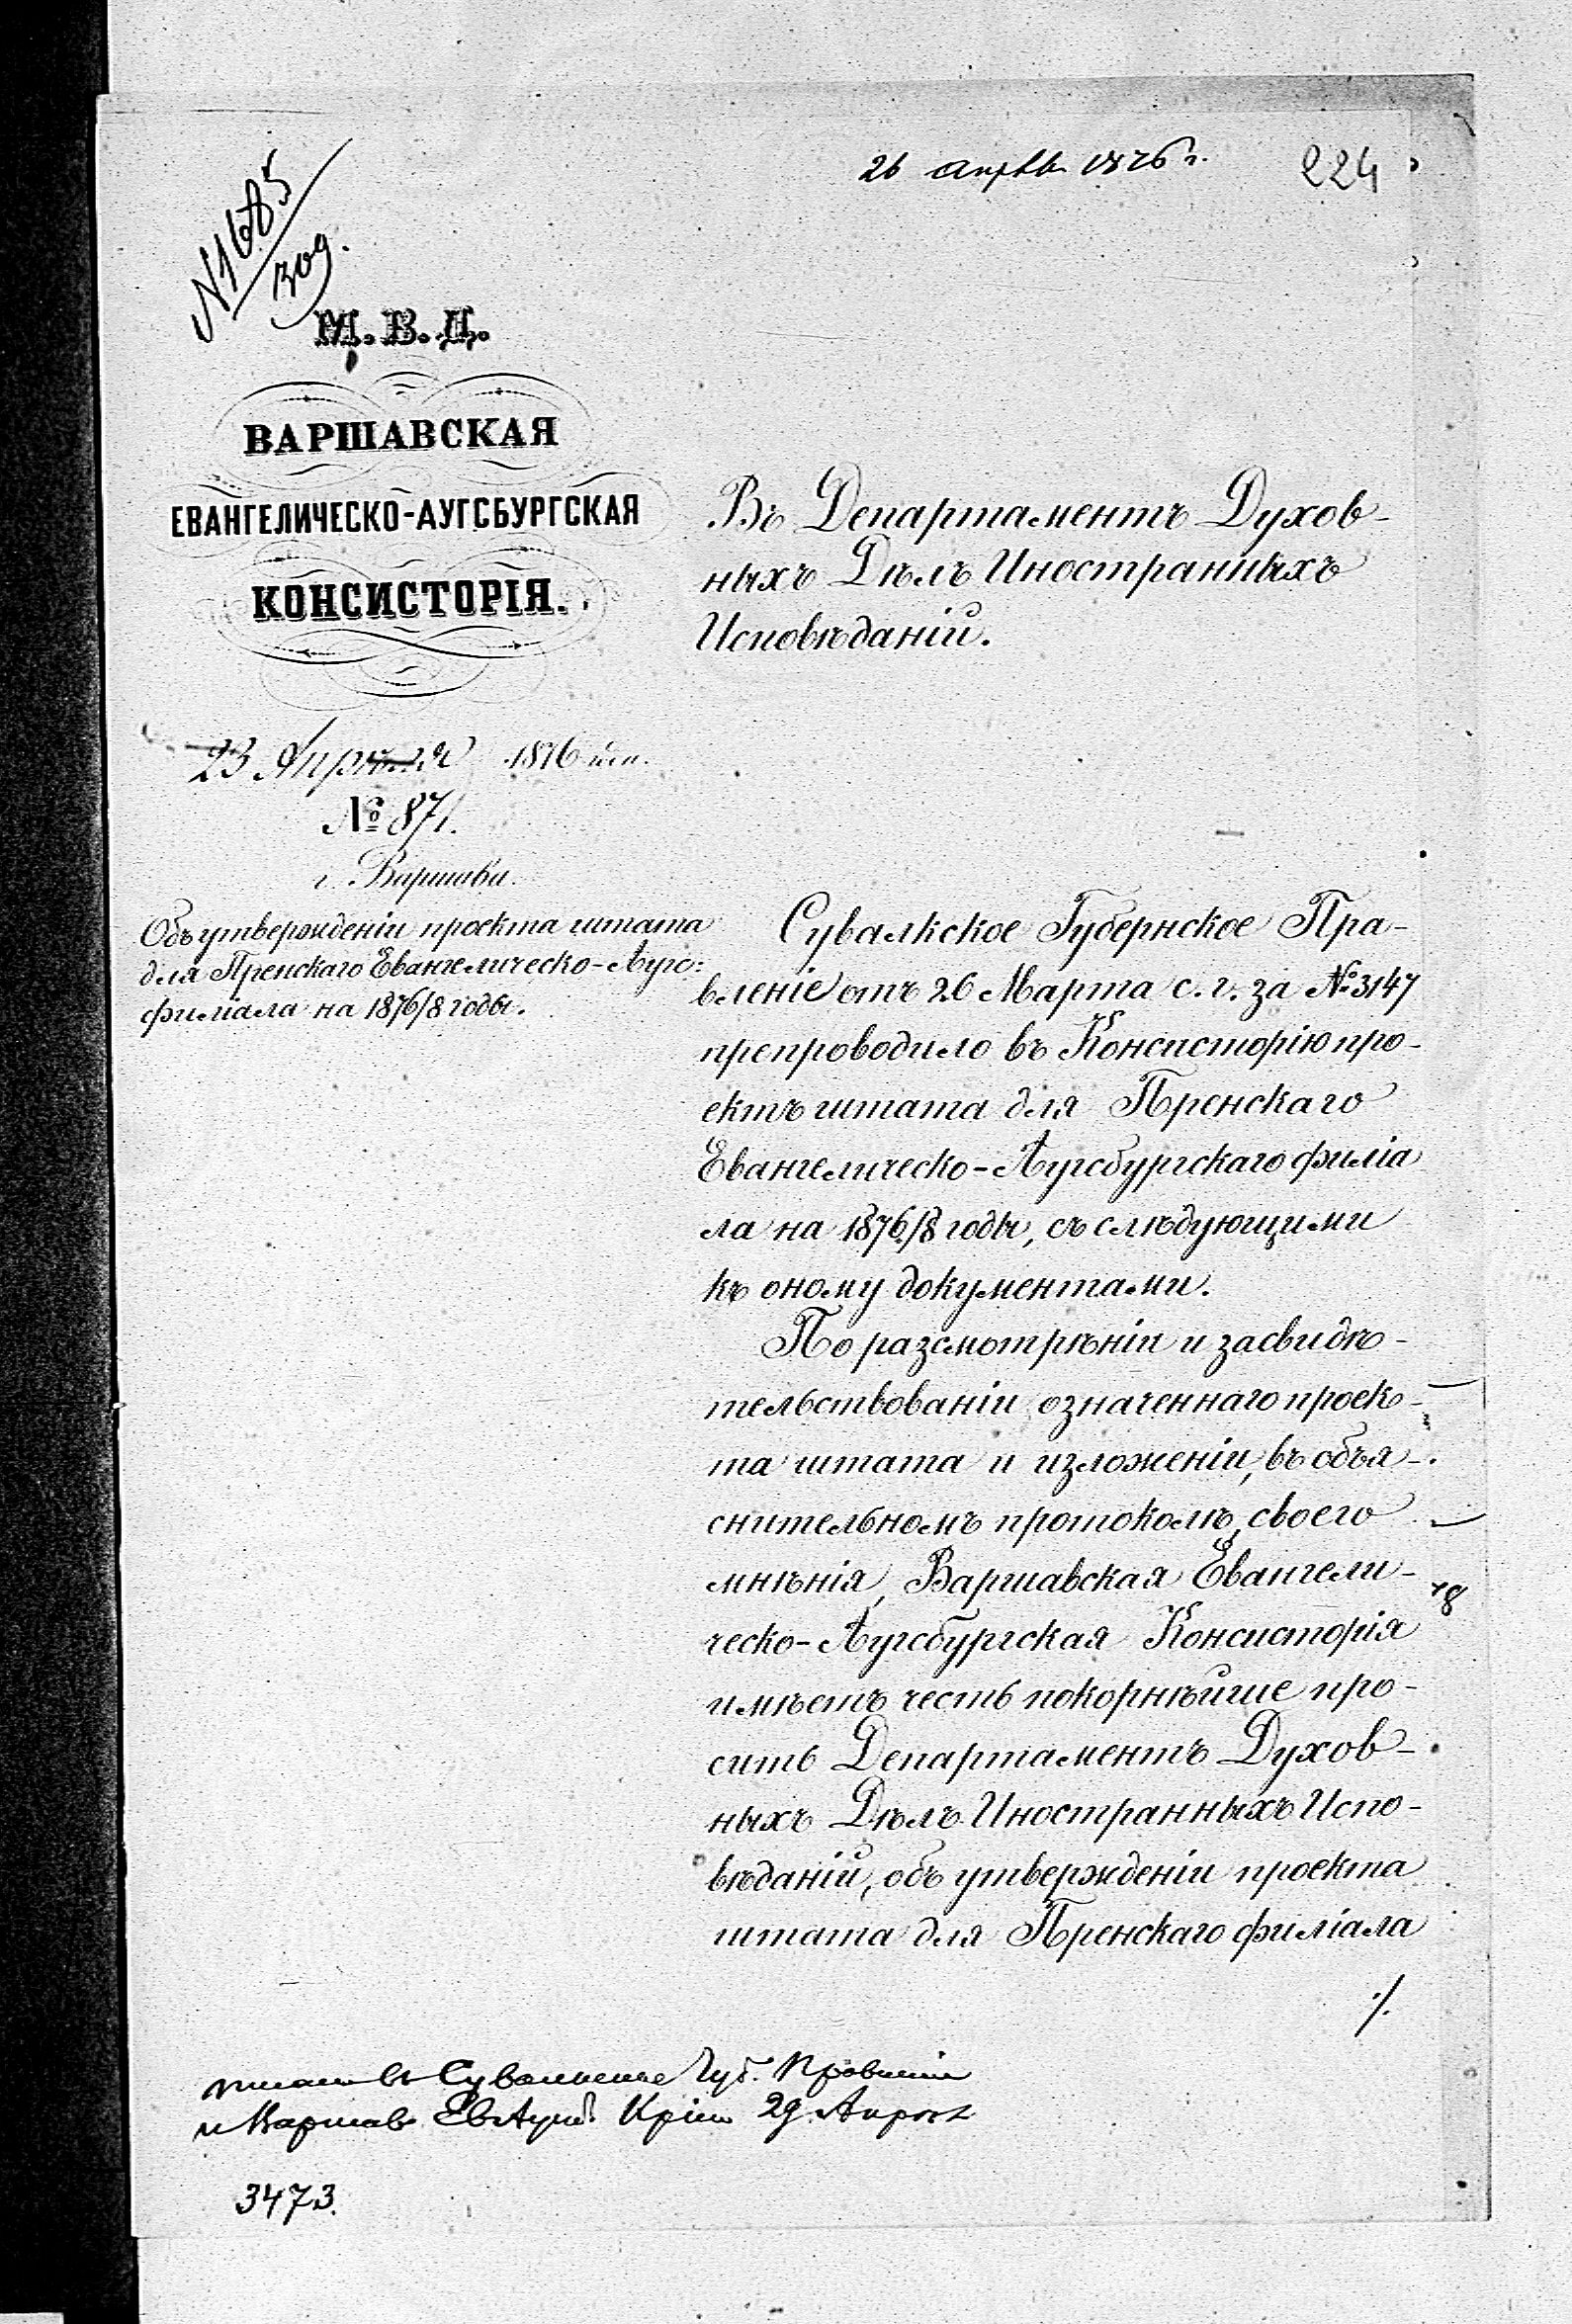 26 апрѣля 1876 г.
224
М. В. Д.
ВАРШАВСКАЯ
ЕВАНГЕЛИЧЕСКО-АУГСБУРГСКАЯ
КОНСИСТОРІЯ.
23 Апрѣля 1876
№ 871.
г. Варшава.
Объ утвержденіи проекта штата
для Пренскаго Евангелическо-Аугс:
филіала на 1876/8 годы.
Въ Департаментъ Духов-
ныхъ Дѣлъ Иностранныхъ
Исповѣданій.
Сувалкское Губернское Пра-
вленіе отъ 26 Марта с. г. за № 3147
препроводило въ Консисторію про-
ектъ штата для Пренскаго
Евангелическо-Аугсбургскаго филіа
ла на 1876/8 годы, съ слѣдующими
къ оному документами.
По разсмотрѣніи и засвидѣ-
тельствованіи означеннаго проек-
та штата и изложеніи, въ объя-
снительномъ протоколѣ, своего
мнѣнія, Варшавская Евангели-
ческо-Аугсбургская Консисторія
имѣетъ честь покорнѣйше про-
сить Департаментъ Духов-
ныхъ Дѣлъ Иностранныхъ Испо-
вѣданій, объ утвержденіи проекта
штата для Пренскаго филіала
./.
Губ. Правленіе
и Варшав. 29 Апрѣля
3473.